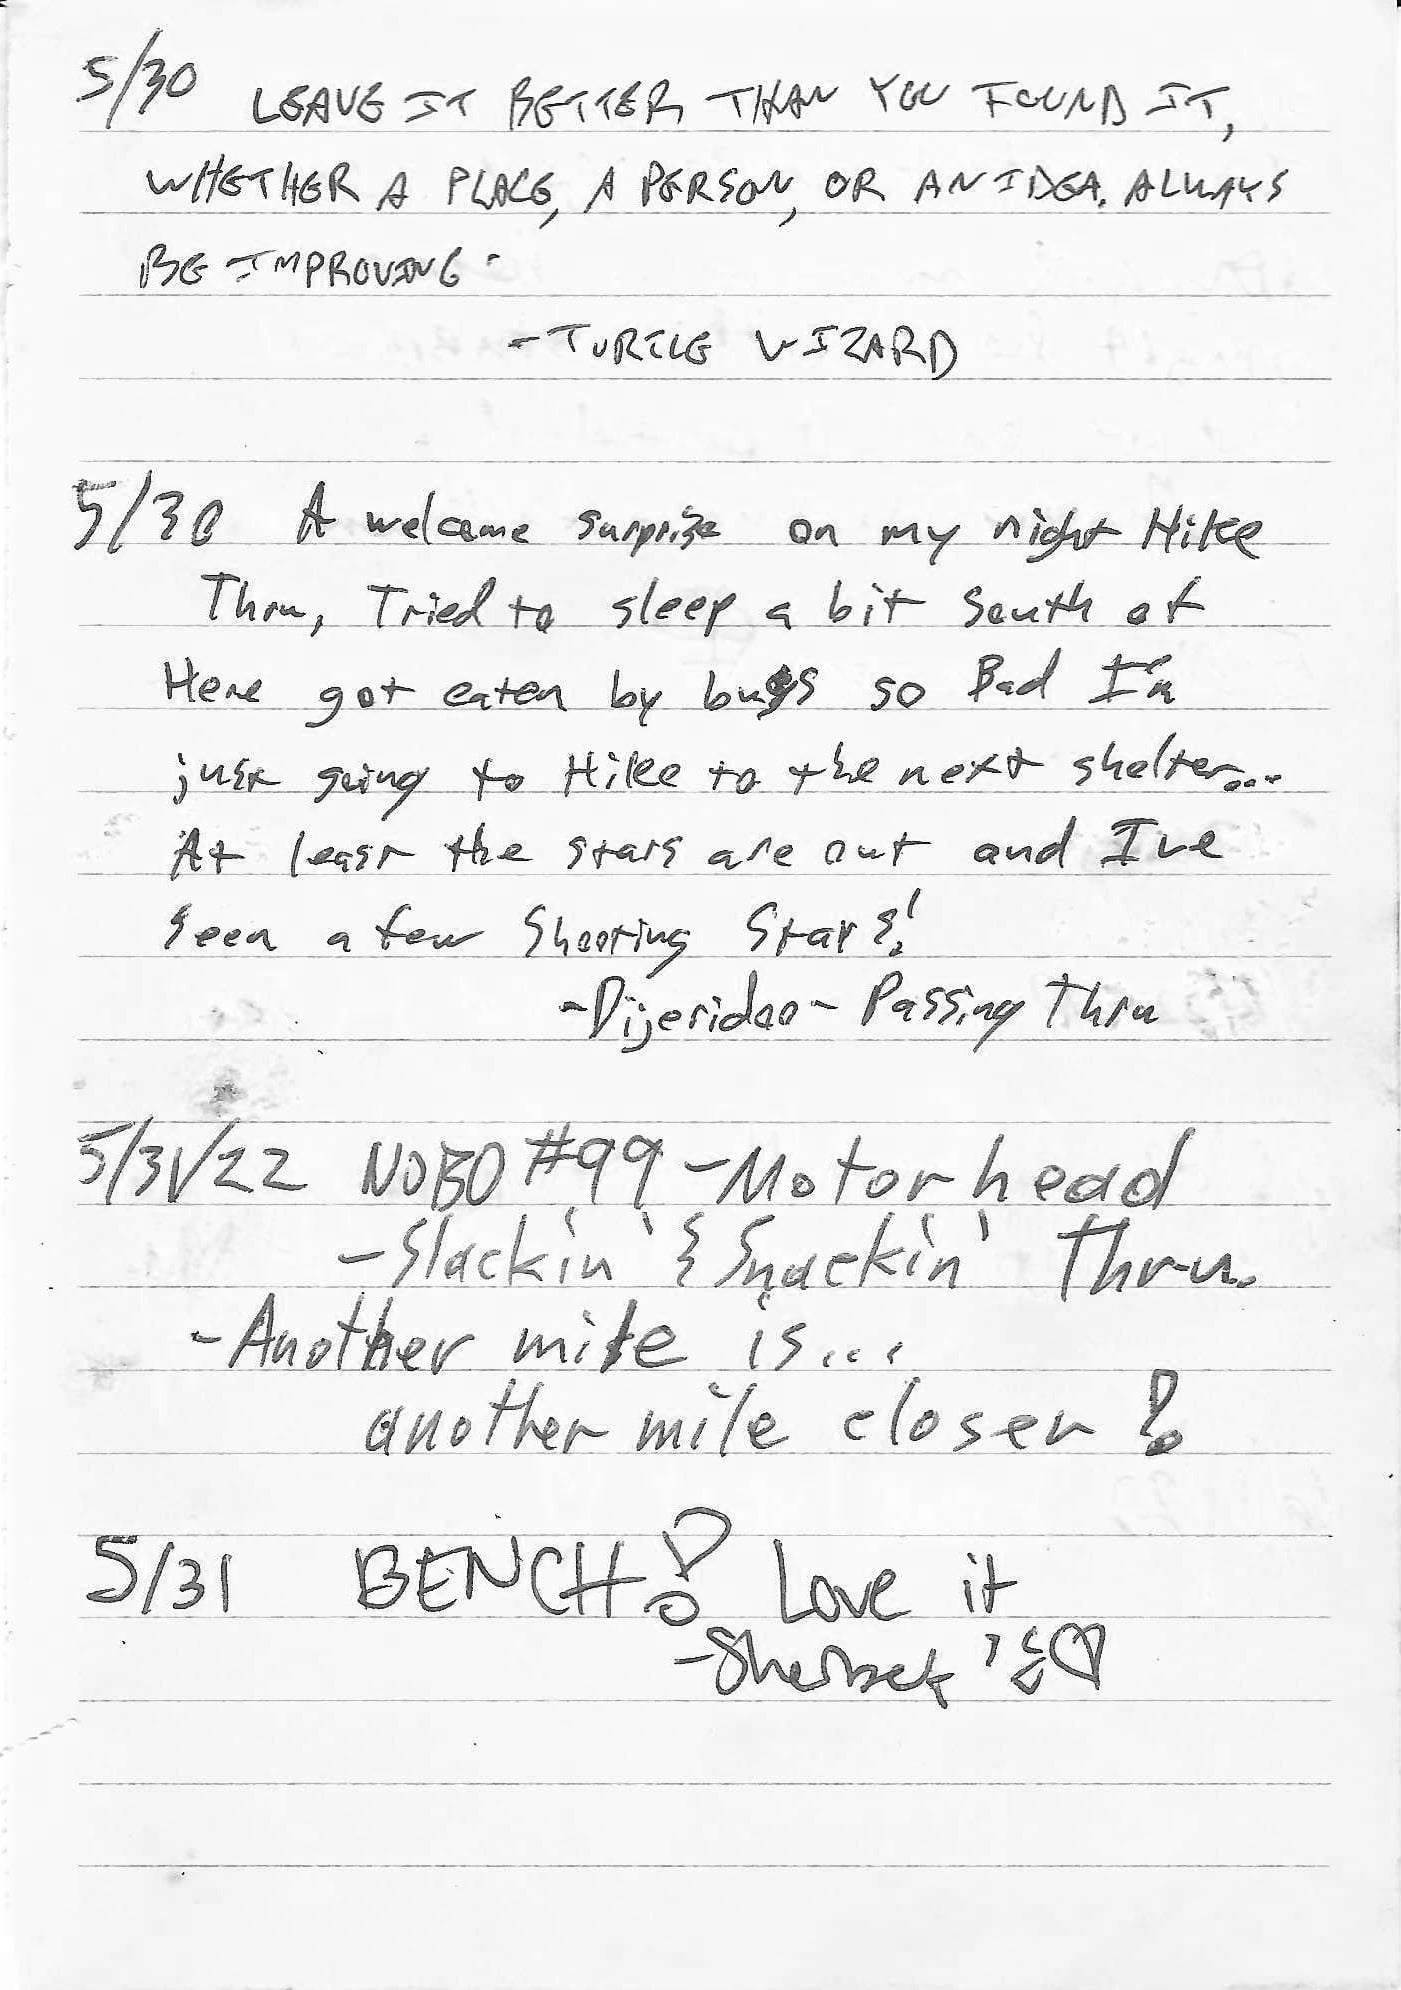 5/30 LEAVE IT BETTER THAN YOU FOUND IT,
WHETHER A PLACE, A PERSON, OR AN IDEA. ALWAYS
BE IMPROVING.
-TURTLE WIZARD
5/30 A welcome surprise on my night Hike
Thru, Tried to sleep a bit South of
Here got eaten by bugs so Bad I'm
just going to Hike to the next shelter...
At least the stars are out and I've
Seen a few Shooting Stars!
-Dijeridoo- Passing Thru
5/31/22 NOBO #99 -Motorhead
-Slackin' & Snackin' Thru.
-Another mile is...
another mile closer!
5/31 BENCH! Love it
-Sherbet